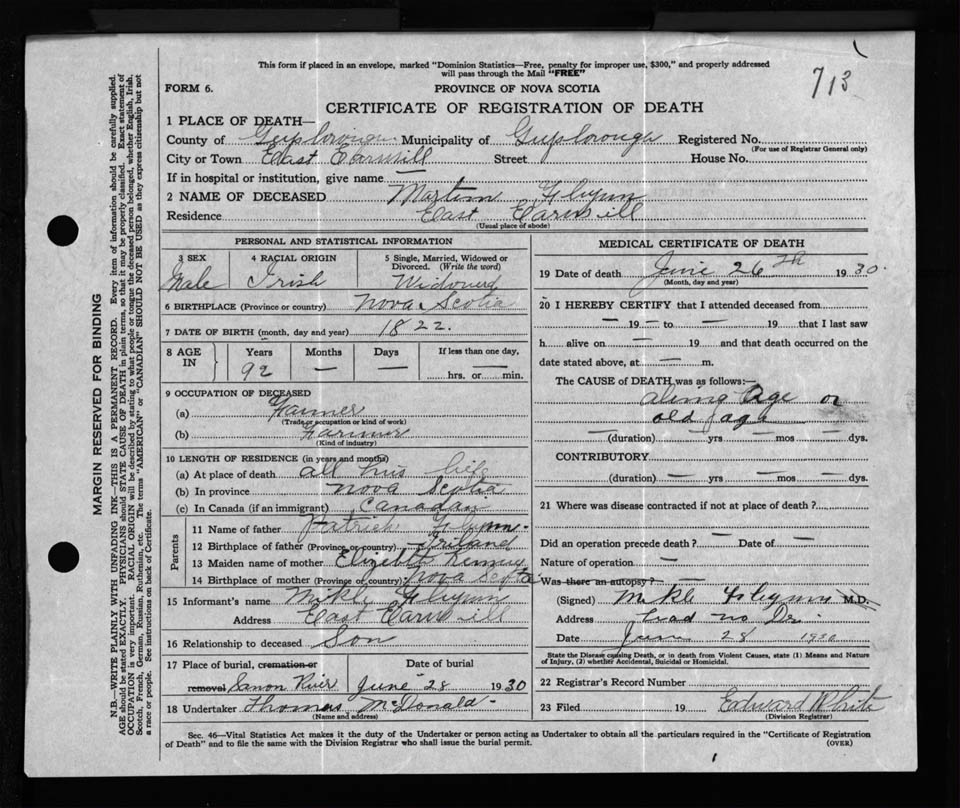 This form if placed in an envelope, marked "Dominion Statistics—Free, penalty for improper use, $300," and properly addressed
will pass through the Mail "FREE"
713
FORM 6.
PROVINCE OF NOVA SCOTIA
CERTIFICATE OF REGISTRATION OF DEATH
1 PLACE OF DEATH—
County of Municipality of Guysborough Registered No.
(For use of Registrar General only)
City or Town East Street House No.
If in hospital or institution, give name —
2 NAME OF DECEASED Martin Flynn
Residence East
(Usual place of abode)
PERSONAL AND STATISTICAL INFORMATION
3 SEX
Male
4 RACIAL ORIGIN
Irish
5 Single, Married, Widowed or
Divorced. (Write the word)
Widowed
6 BIRTHPLACE (Province or country) Nova Scotia
7 DATE OF BIRTH (month, day and year) 1822.
8 AGE
IN
Years
92
Months
—
Days
—
If less than one day,
— hrs. or min.
9 OCCUPATION OF DECEASED
(a) Farmer
(Trade or occupation or kind of work)
(b) Farimer
(Kind of industry)
10 LENGTH OF RESIDENCE (in years and months)
(a) At place of death all his life
(b) In province Nova Scotia
(c) In Canada (if an immigrant) Canadan
Parents
11 Name of father Patrick Flynn
12 Birthplace of father (Province or country) Iriland
13 Maiden name of mother
14 Birthplace of mother (Province or country) Nova Scotia
15 Informant's name Mikle Flynn
Address East
16 Relationship to deceased Son
17 Place of burial, cremation or
removal River
Date of burial
June 28 1930
18 Undertaker Thomas McDonald
(Name and address)
MEDICAL CERTIFICATE OF DEATH
19 Date of death June 26th 1930.
(Month, day and year)
20 I HEREBY CERTIFY that I attended deceased from
— 19 — to — 19 that I last saw
h alive on — 19 — and that death occurred on the
date stated above, at — m.
The CAUSE of DEATH was as follows:—
age or
old age
— (duration) — yrs — mos — dys.
CONTRIBUTORY
— (duration) — yrs — mos — dys.
21 Where was disease contracted if not at place of death?
Did an operation precede death? — Date of —
Nature of operation —
Was there an autopsy? —
(Signed) Mikle Flynn M.D.
Address had no Dr.
Date June 28 1930
State the Disease causing Death, or in death from Violent Causes, state (1) Means and Nature
of Injury, (2) whether Accidental, Suicidal or Homicidal.
22 Registrar's Record Number
23 Filed 19 Edward White
(Division Registrar)
Sec. 46—Vital Statistics Act makes it the duty of the Undertaker or person acting as Undertaker to obtain all the particulars required in the "Certificate of Registration
of Death" and to file the same with the Division Registrar who shall issue the burial permit.
(OVER)
MARGIN RESERVED FOR BINDING
N.B.—WRITE PLAINLY WITH UNFADING INK—THIS IS A PERMANENT RECORD. Every item of information should be carefully supplied.
AGE should be stated EXACTLY. PHYSICIANS should STATE CAUSE OF DEATH in plain terms, so that it may be properly classified. Exact statement of
OCCUPATION is very important. RACIAL ORIGIN will be described by stating to what people or tongue the deceased person belonged, whether English, Irish,
Scotch, French, German, Russian, Ruthenian, etc. The terms "AMERICAN" or "CANADIAN" SHOULD NOT BE USED as they express citizenship but not
a race or people. See instructions on back of Certificate.